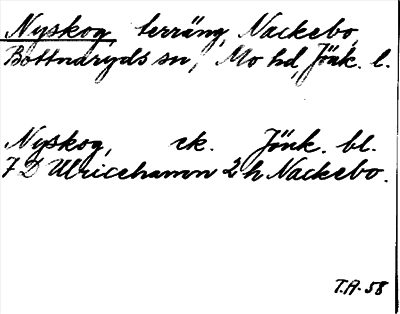 Nyskog, terräng, Nackebo,
Bottnaryds sn, Mo hd, Jönk. l.
Nyskog, ek. Jönk. bl.
7 D Ulricehamn 2 h Nackebo.
T.A. 58